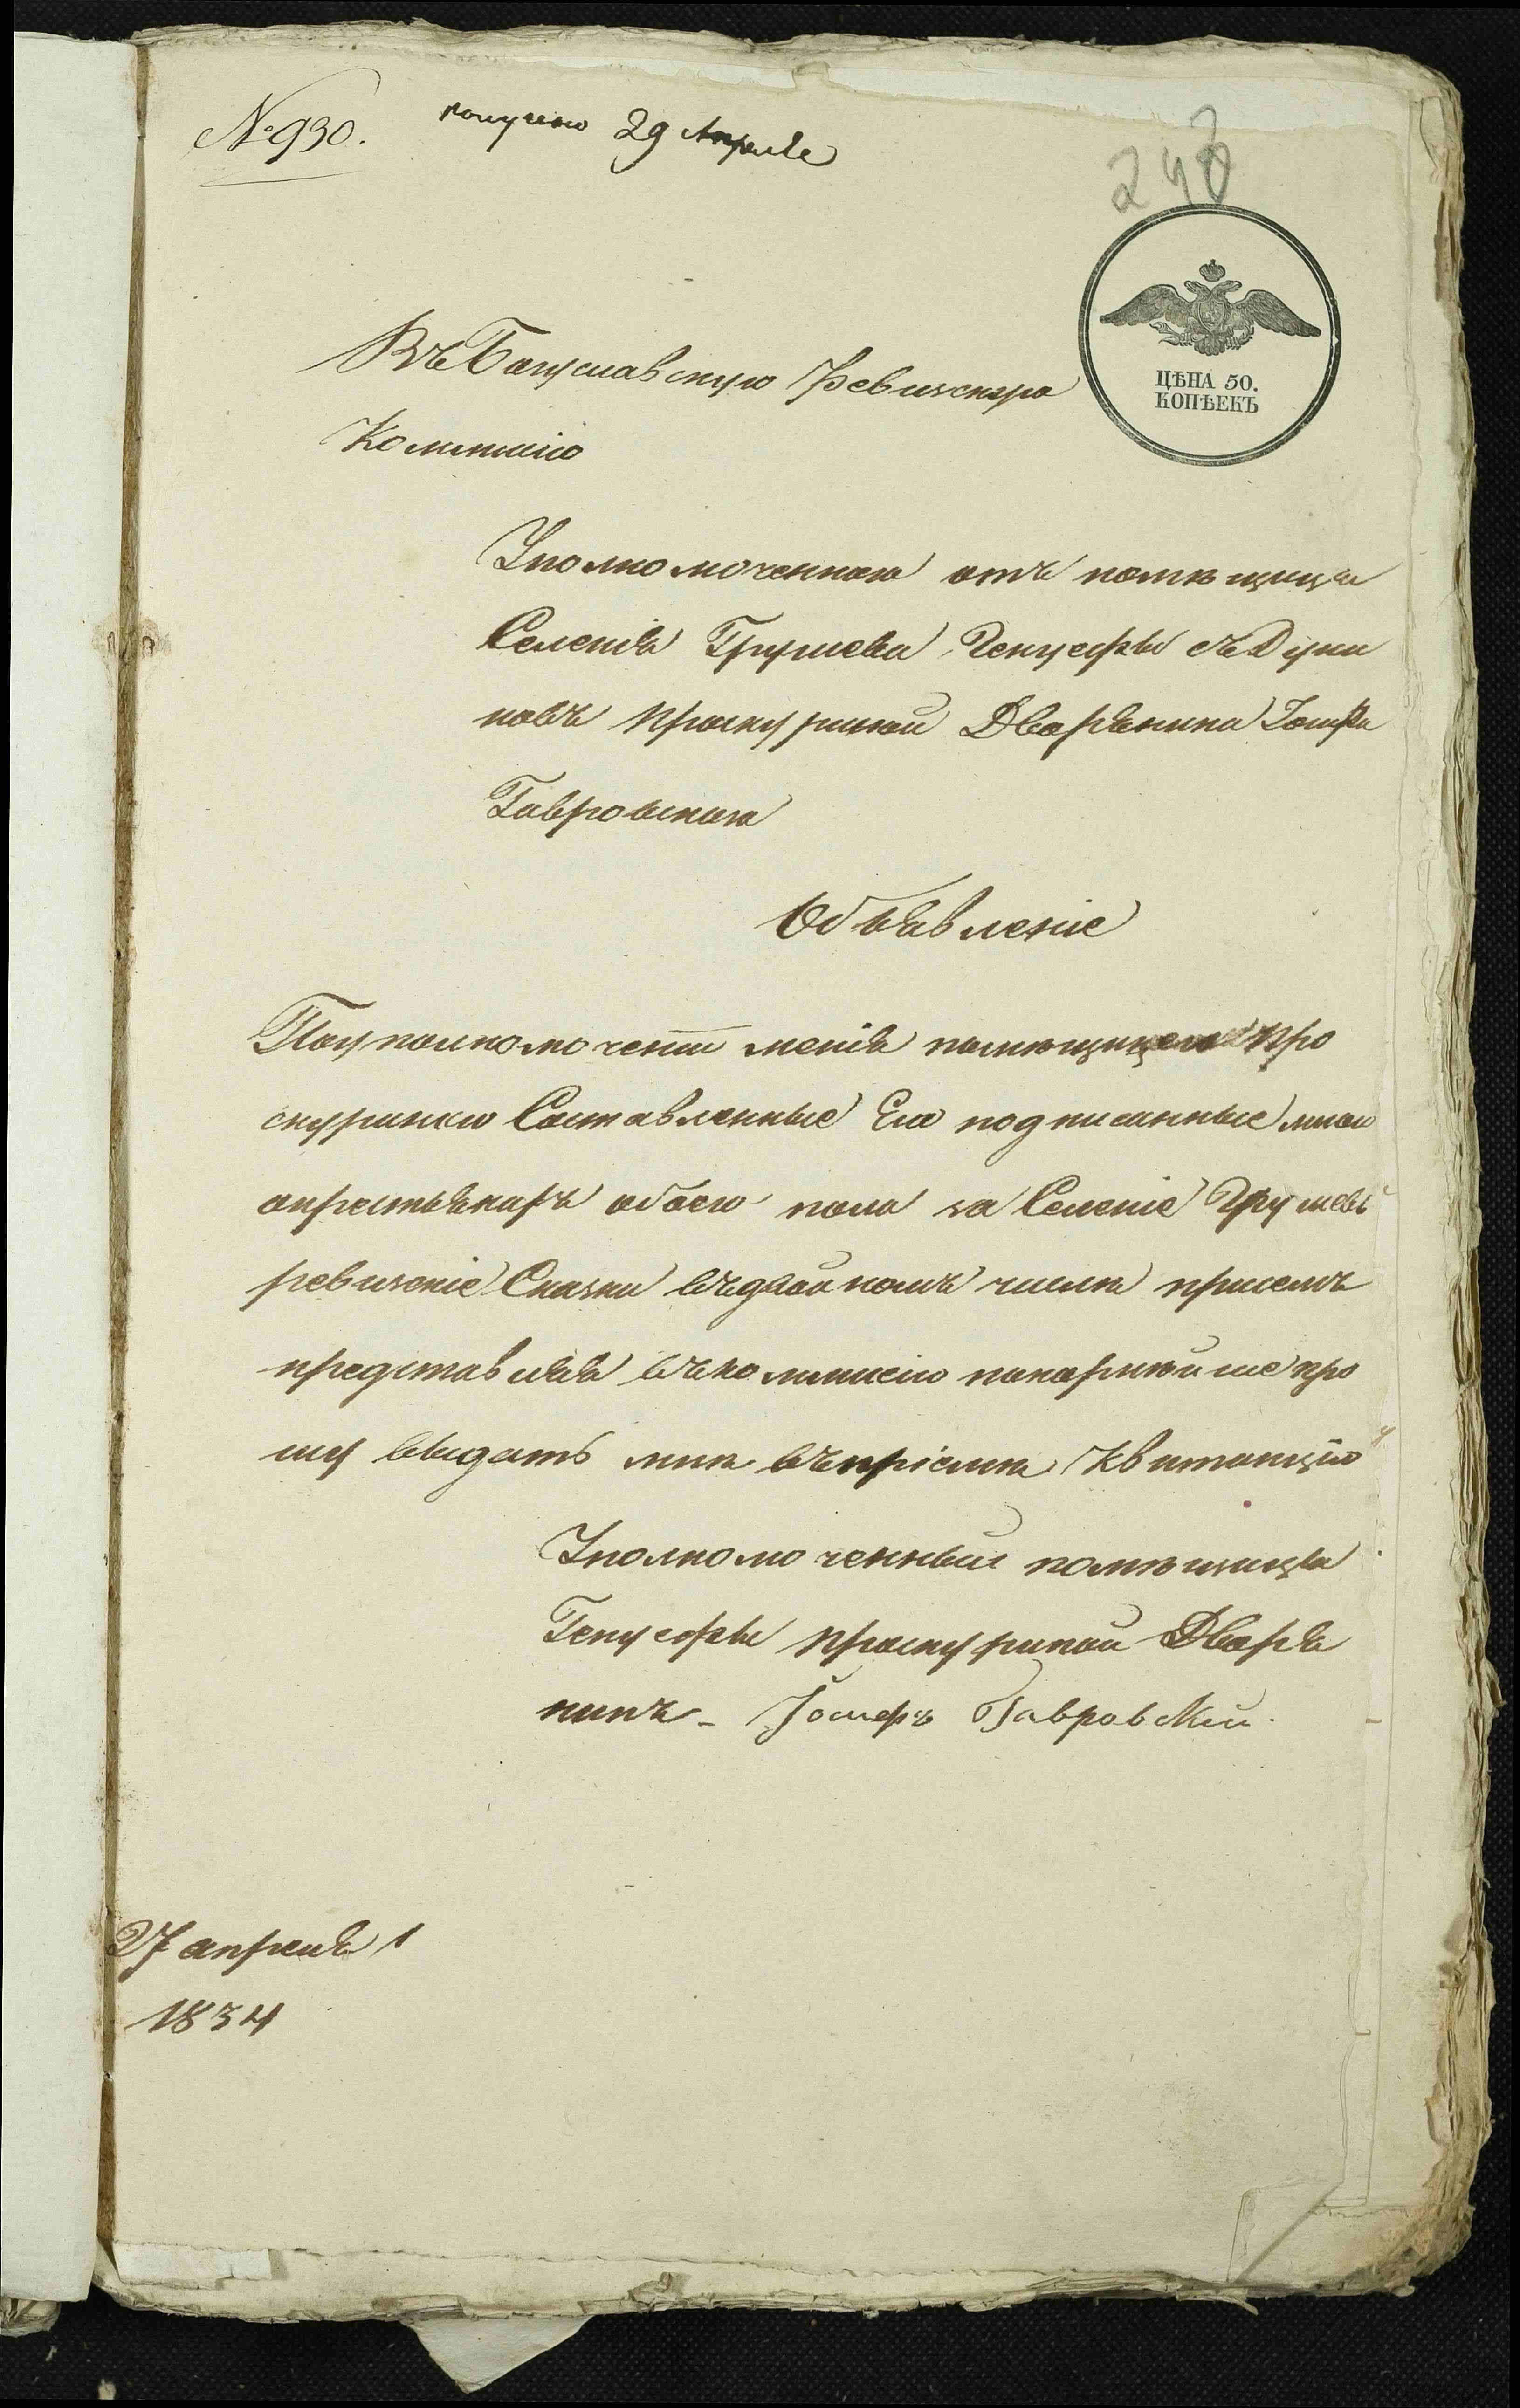 № 930. получено 29 Апреля
248
ЦѢНА 50.
КОПѢЕКЪ
Въ Богуславскую Ревизскую
Коммисію
Уполномоченнаго отъ помѣщицы
Селенія Грушева Генуефы съ Дуни
новъ Проскуриной Дворянина Іосифа
Гавровскаго
Объявленіе
По уполномочети менія помѣщицею Про
скуриною Составленные Ею подписанные мною
о крестьянахъ обоего пола за Селеніе Грушевъ
ревизскіе Сказки въ двойномъ числѣ присемъ
представляя въ коммисію покорнѣйше про
шу выдать мнѣ въ пріемѣ Квитанцію
Уполномоченный помѣщицы
Генуефы Проскуриной Дворя
нинъ - Іосифъ Гавровскій.
27 апреля
1834